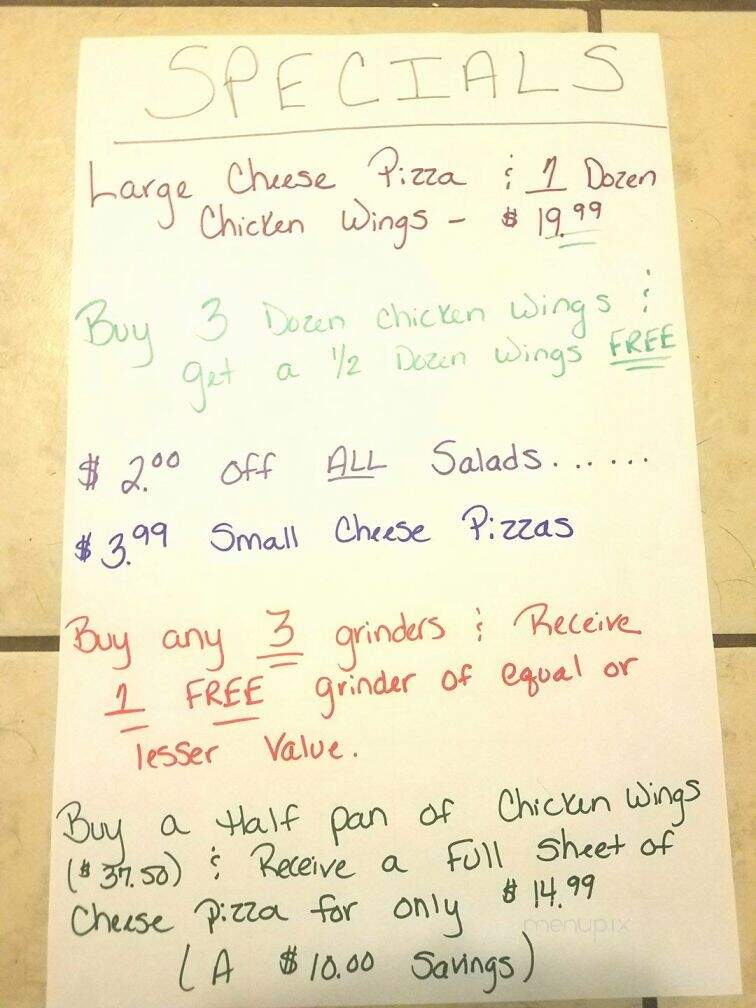 SPECIALS
Large Cheese Pizza & 1 Dozen
Chicken Wings - $19.99
Buy 3 Dozen chicken wings &
get a 1/2 Dozen wings FREE
$2.00 off ALL Salads......
$3.99 Small Cheese Pizzas
Buy any 3 grinders & Receive
1 FREE grinder of equal or
lesser value.
Buy a Half pan of Chicken Wings
($37.50) & Receive a Full Sheet of
Cheese Pizza for only $14.99
(A $10.00 Savings)
menupix